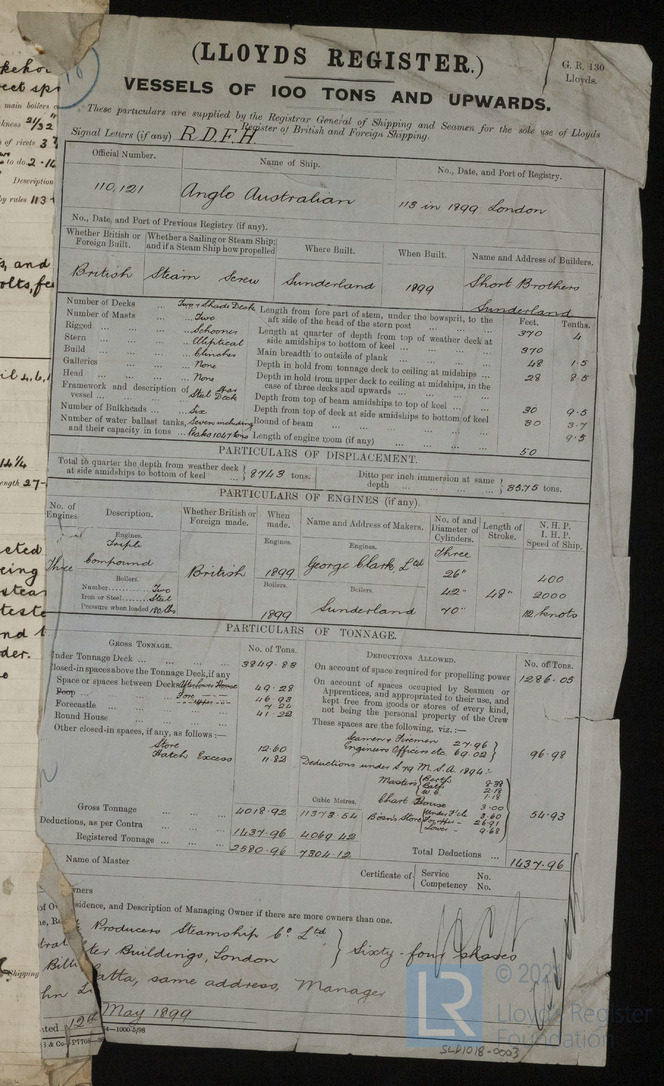 (LLOYDS REGISTER.)
G. R. 130
Lloyds.
VESSELS OF 100 TONS AND UPWARDS.
These particulars are supplied by the Registrar General of Shipping and Seamen for the sole use of Lloyds
Register of British and Foreign Shipping.
Signal Letters (if any) R.D.F.H.
Official Number. Name of Ship. No., Date, and Port of Registry.
110,121 Anglo Australian 113 in 1899 London
No., Date, and Port of Previous Registry (if any).
Whether British or Foreign Built. Whether a Sailing or Steam Ship; and if a Steam Ship how propelled Where Built. When Built. Name and Address of Builders.
British Steam Screw Sunderland 1899 Short Brothers
Sunderland
Number of Decks ... Two & Shade Deck
Number of Masts ... Two
Rigged ... Schooner
Stern ... Elliptical
Build ... Clincher
Galleries ... None
Head ... None
Framework and description of vessel ... Steel Spar Deck
Number of Bulkheads ... Six
Number of water ballast tanks, and their capacity in tons ... Seven including Peaks 1047 tons
Feet. Tenths.
Length from fore part of stem, under the bowsprit, to the aft side of the head of the stern post 370 4
Length at quarter of depth from top of weather deck at side amidships to bottom of keel 370
Main breadth to outside of plank 48 1.5
Depth in hold from tonnage deck to ceiling at midships 28 8.5
Depth in hold from upper deck to ceiling at midships, in the case of three decks and upwards
Depth from top of beam amidships to top of keel 30 9.5
Depth from top of deck at side amidships to bottom of keel 30 3.7
Round of beam 9.5
Length of engine room (if any) 50
PARTICULARS OF DISPLACEMENT.
Total to quarter the depth from weather deck at side amidships to bottom of keel 8743 tons. Ditto per inch immersion at same depth 35.75 tons.
PARTICULARS OF ENGINES (if any).
No. of Engines. Description. Whether British or Foreign made. When made. Name and Address of Makers. No. of and Diameter of Cylinders. Length of Stroke. N. H. P. I. H. P. Speed of Ship.
Engines. Engines. Engines.
Triple Three
Three Compound British 1899 George Clark, Ltd 26" 400
Boilers. Boilers. Boilers.
Number Two 42" 48" 2000
Iron or Steel Steel
Pressure when loaded 180 lbs 1899 Sunderland 70" 12 knots
PARTICULARS OF TONNAGE.
GROSS TONNAGE. No. of Tons.
Under Tonnage Deck ... 3849.88
Closed-in spaces above the Tonnage Deck, if any
Space or spaces between Decks 49.28
Poop 46.93
Forecastle ... 7.21
Round House ... 41.22
Other closed-in spaces, if any, as follows:—
Store 12.60
Hatch Excess 11.82
Cubic Metres.
Gross Tonnage 4018.92 11373.54
Deductions, as per Contra 1437.96 4069.42
Registered Tonnage 2580.96 7304.12
DEDUCTIONS ALLOWED. No. of Tons.
On account of space required for propelling power 1286.05
On account of spaces occupied by Seamen or Apprentices, and appropriated to their use, and kept free from goods or stores of every kind, not being the personal property of the Crew
These spaces are the following, viz.:—
Seamen & Firemen 27.96
Engineers Officers etc 69.02 96.98
Deductions under S 79 M.S.A. 1894:-
Masters Berth 8.38
Bath 2.18
W.C. 1.18
Chart House 3.00
Bosn's Store Under F'cle 3.60
26.91
Lower 9.68
54.93
Total Deductions ... 1437.96
Name of Master
Certificate of Service No.
Competency No.
Owners
Residence, and Description of Managing Owner if there are more owners than one.
Producers Steamship Co. Ltd
ter Buildings, London } Sixty-four shares
atta, same address, Manager
12th May 1899
© 202
LR
Lloyd's Register
Foundation
SLD1018-0003